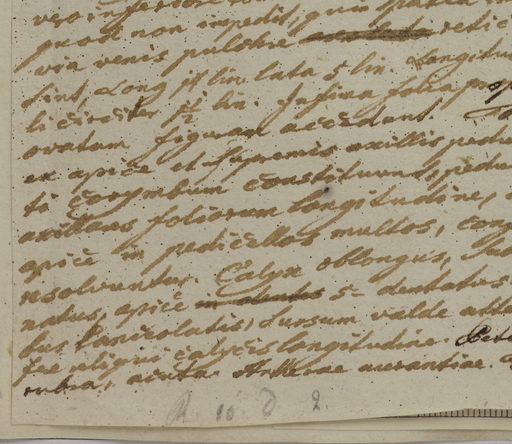 vero inferiore
quod non impedit, quin
via venis pulchre retic
sint, Long 14 lin. lata 5 lin. Longitu
li circiter lin. Infima folia prop
ovatum figuram accedunt.
ex apice et supremis axillis pedu
ti corymbum constituunt, pedun
axillares foliorum longitudine,
apice in pedicellos multos, cory
nsolvuntur. Calyx oblongus,
natus, apice 5-dentatus
bus lanceolatis, sursum valde att
fere reliqui calycis longitudine.
rubra, acuta. Antherae aurantiae.
R. 10 D 2.